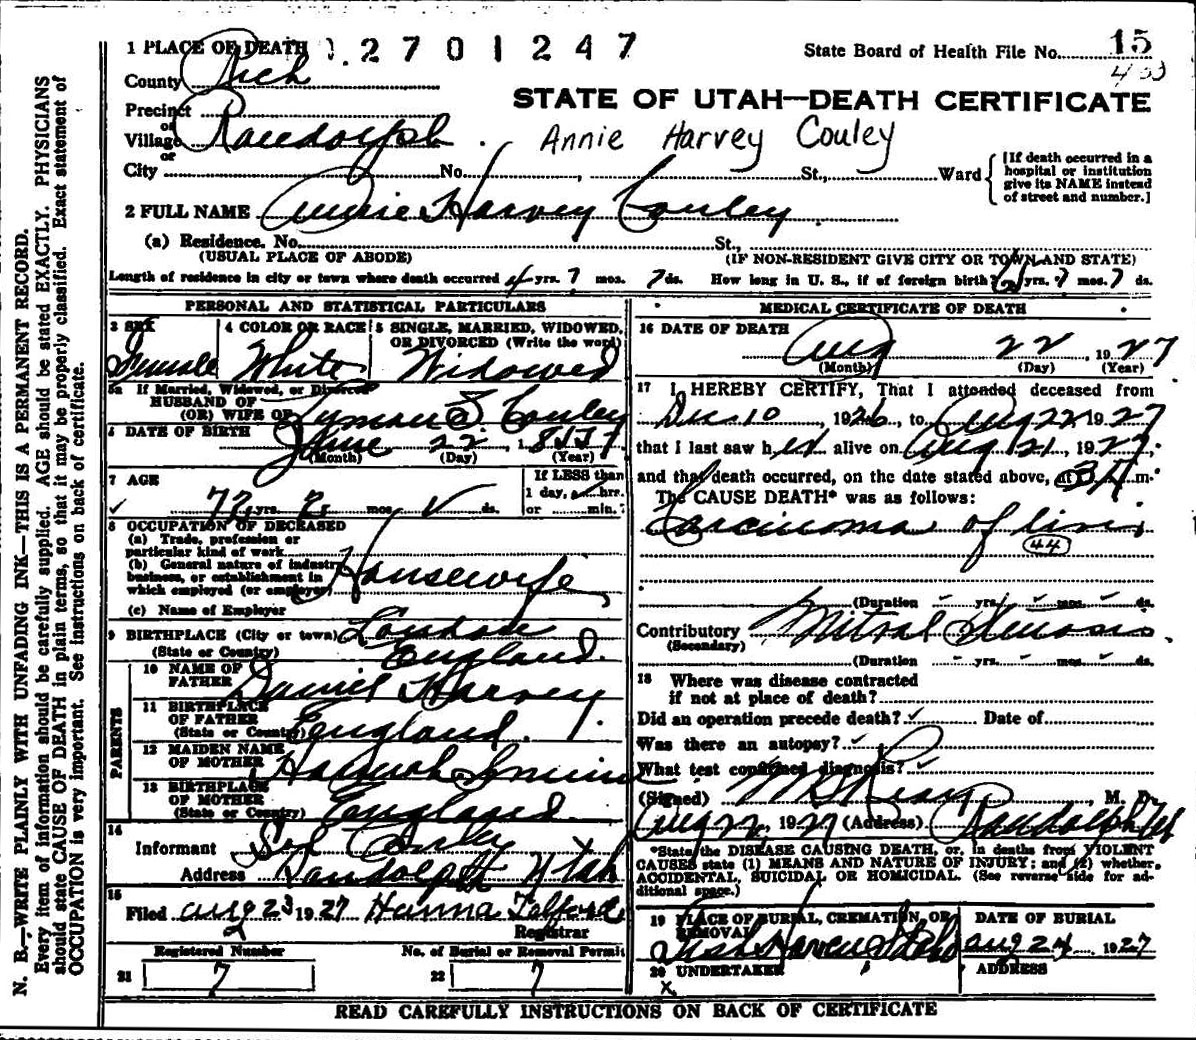 N. B.—WRITE PLAINLY WITH UNFADING INK—THIS IS A PERMANENT RECORD.
Every item of information should be carefully supplied. AGE should be stated EXACTLY. PHYSICIANS
should state CAUSE OF DEATH in plain terms, so that it may be properly classified. Exact statement of
OCCUPATION is very important. See instructions on back of certificate.
1 PLACE OF DEATH 2701247
State Board of Health File No. 15
County Rich
STATE OF UTAH—DEATH CERTIFICATE
Precinct
or
Village Randolph. Annie Harvey Couley
or
City No. St., Ward
[If death occurred in a
hospital or institution
give its NAME instead
of street and number.]
2 FULL NAME Annie Harvey Couley
(a) Residence. No. St.,
(USUAL PLACE OF ABODE) (IF NON-RESIDENT GIVE CITY OR TOWN AND STATE)
Length of residence in city or town where death occurred yrs. 7 mos. 7 ds. How long in U. S., if of foreign birth? yrs. mos. 7 ds.
PERSONAL AND STATISTICAL PARTICULARS
3 SEX 4 COLOR OR RACE 5 SINGLE, MARRIED, WIDOWED,
OR DIVORCED (Write the word)
Female White Widowed
5a If Married, Widowed, or Divorced
HUSBAND OF
(OR) WIFE OF Lyman S Couley
6 DATE OF BIRTH June 22, 1855
(Month) (Day) (Year)
7 AGE If LESS than
1 day, hrs.
72 yrs. 2 mos. ds. or min.
8 OCCUPATION OF DECEASED
(a) Trade, profession or
particular kind of work
(b) General nature of industry,
business, or establishment in
which employed (or employer) Housewife
(c) Name of Employer
9 BIRTHPLACE (City or town) London
(State or Country) England.
PARENTS
10 NAME OF
FATHER Daniel Harvey
11 BIRTHPLACE
OF FATHER
(State or Country) England.
12 MAIDEN NAME
OF MOTHER Hannah
13 BIRTHPLACE
OF MOTHER
(State or Country) England.
14
Informant
Address Randolph Utah
15
Filed Aug 23 1927 Hanna Telford
Registrar
2
Registered Number No. of Burial or Removal Permit
21 7 22 7
MEDICAL CERTIFICATE OF DEATH
16 DATE OF DEATH
Aug 22, 1927
(Month) (Day) (Year)
17 I HEREBY CERTIFY, That I attended deceased from
Dec 10, 1926, to Aug 22 1927
that I last saw her alive on Aug 21, 1927,
and that death occurred, on the date stated above, at 3 A m.
The CAUSE DEATH* was as follows:
Carcinoma of liver
44
(Duration yrs. mos. ds.
Contributory Mitral Stenosis.
(Secondary)
(Duration yrs. mos. ds.
18 Where was disease contracted
if not at place of death?
Did an operation precede death? Date of
Was there an autopsy?
What test confirmed diagnosis?
(Signed) M. D.
Aug 22, 1927 (Address) Randolph Ut
*State the DISEASE CAUSING DEATH, or, in deaths from VIOLENT
CAUSES state (1) MEANS AND NATURE OF INJURY; and (2) whether
ACCIDENTAL, SUICIDAL OR HOMICIDAL. (See reverse side for ad-
ditional space.)
19 PLACE OF BURIAL, CREMATION, OR
REMOVAL DATE OF BURIAL
Utah Aug 24 1927
20 UNDERTAKER ADDRESS
x
READ CAREFULLY INSTRUCTIONS ON BACK OF CERTIFICATE